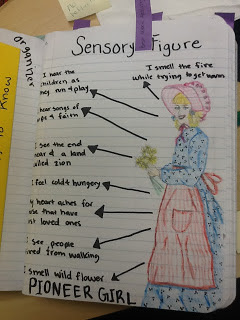 organizer
Know
Sensory Figure
I hear the
children as
they run + play
I smell the fire
while trying to get warm
hear songs of
hope + faith
I see the end
near + a land
called Zion
I feel cold + hungry
My heart aches for
those that have
lost loved ones
I see people
tired from walking
I smell wild flower
PIONEER GIRL